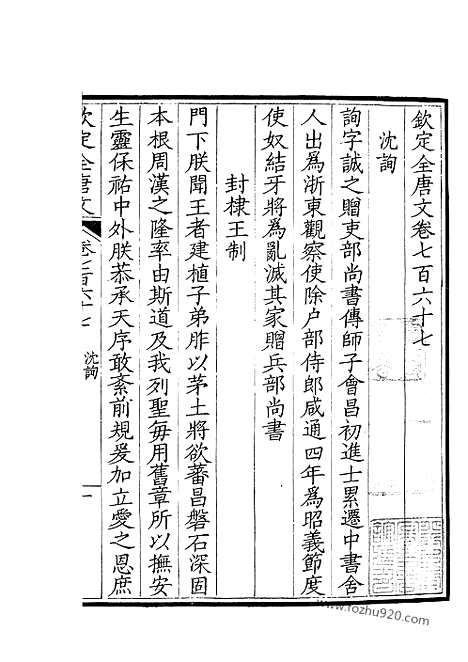 欽定全唐文卷七百六十七
沈詢
詢字誠之贈吏部尚書傳師子會昌初進士累遷中書舍
人出爲浙東觀察使除户部侍郎咸通四年爲昭義節度
使奴結牙將爲亂滅其家贈兵部尚書
封棣王制
門下朕聞王者建植子弟胙以茅土將欲蕃昌磐石深固
本根周漢之隆率由斯道及我列聖每用舊章所以撫安
生靈保祐中外朕恭承天序敢紊前規爰加立愛之恩庶
欽定全唐文
卷七百六十七
沈詢
一
www.fozhu920.com